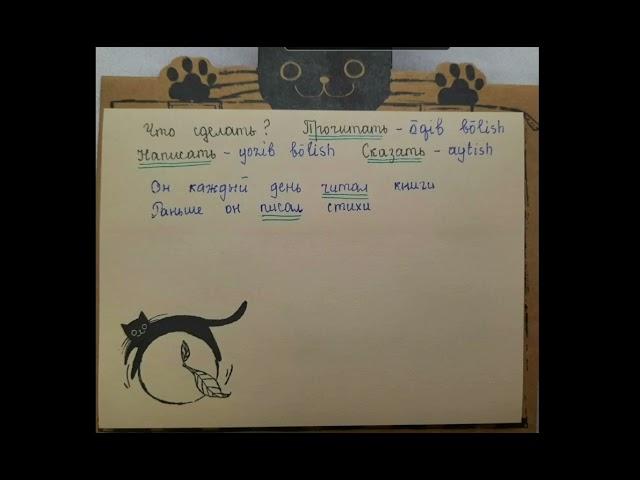 Что сделать? Прочитать - ōqib bōlish
Написать - yozib bōlish Сказать - aytish
Он каждый день читал книги
Раньше он писал стихи